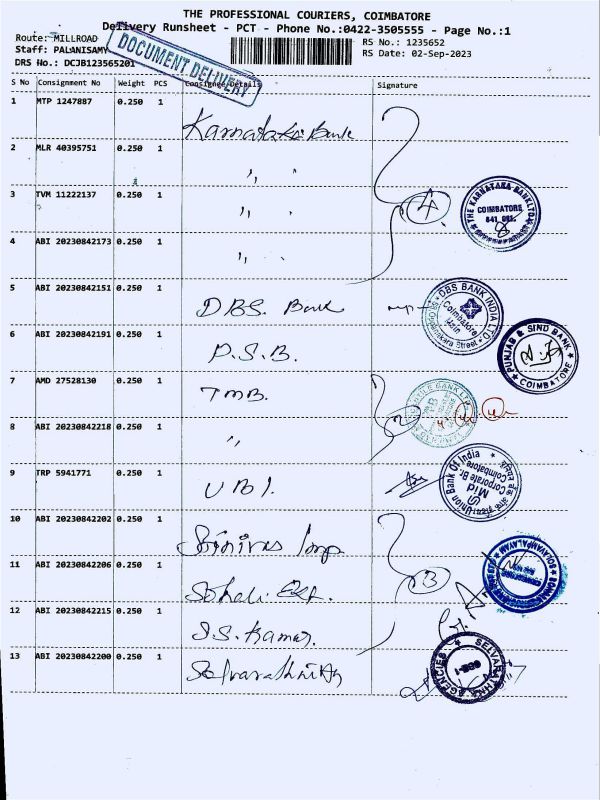 THE PROFESSIONAL COURIERS, COIMBATORE
Delivery Runsheet - PCT - Phone No.:0422-3505555 - Page No.:1
Route: MILLROAD
RS No.: 1235652
Staff: PALANISAMY
RS Date: 02-Sep-2023
DRS No.: DCJB123565201
DOCUMENT DELIVERY
S No Consignment No Weight PCS Consignee Details Signature
1 MTP 1247887 0.250 1 Karnataka Bank
2 MLR 40395751 0.250 1 ,, ,
3 TVM 11222137 0.250 1 ,, ,
4 ABI 20230842173 0.250 1 ,, ,
4
THE KARNATAKA BANK LTD
COIMBATORE
641 001
5 ABI 20230842151 0.250 1 DBS. Bank
DBS BANK INDIA LTD
Coimbatore
Main
6 ABI 20230842191 0.250 1 P.S.B.
PUNJAB & SIND BANK
COIMBATORE
7 AMD 27528130 0.250 1 TMB.
8 ABI 20230842218 0.250 1 ,,
2
9 TRP 5941771 0.250 1 UBI.
Union Bank Of India
Mid
Corporate Br.
Coimbatore
10 ABI 20230842202 0.250 1 Srinivas Imp
11 ABI 20230842206 0.250 1
12 ABI 20230842215 0.250 1 S.S. Kumar.
3
13 ABI 20230842200 0.250 1
SELVARATHNA
AGENCIES